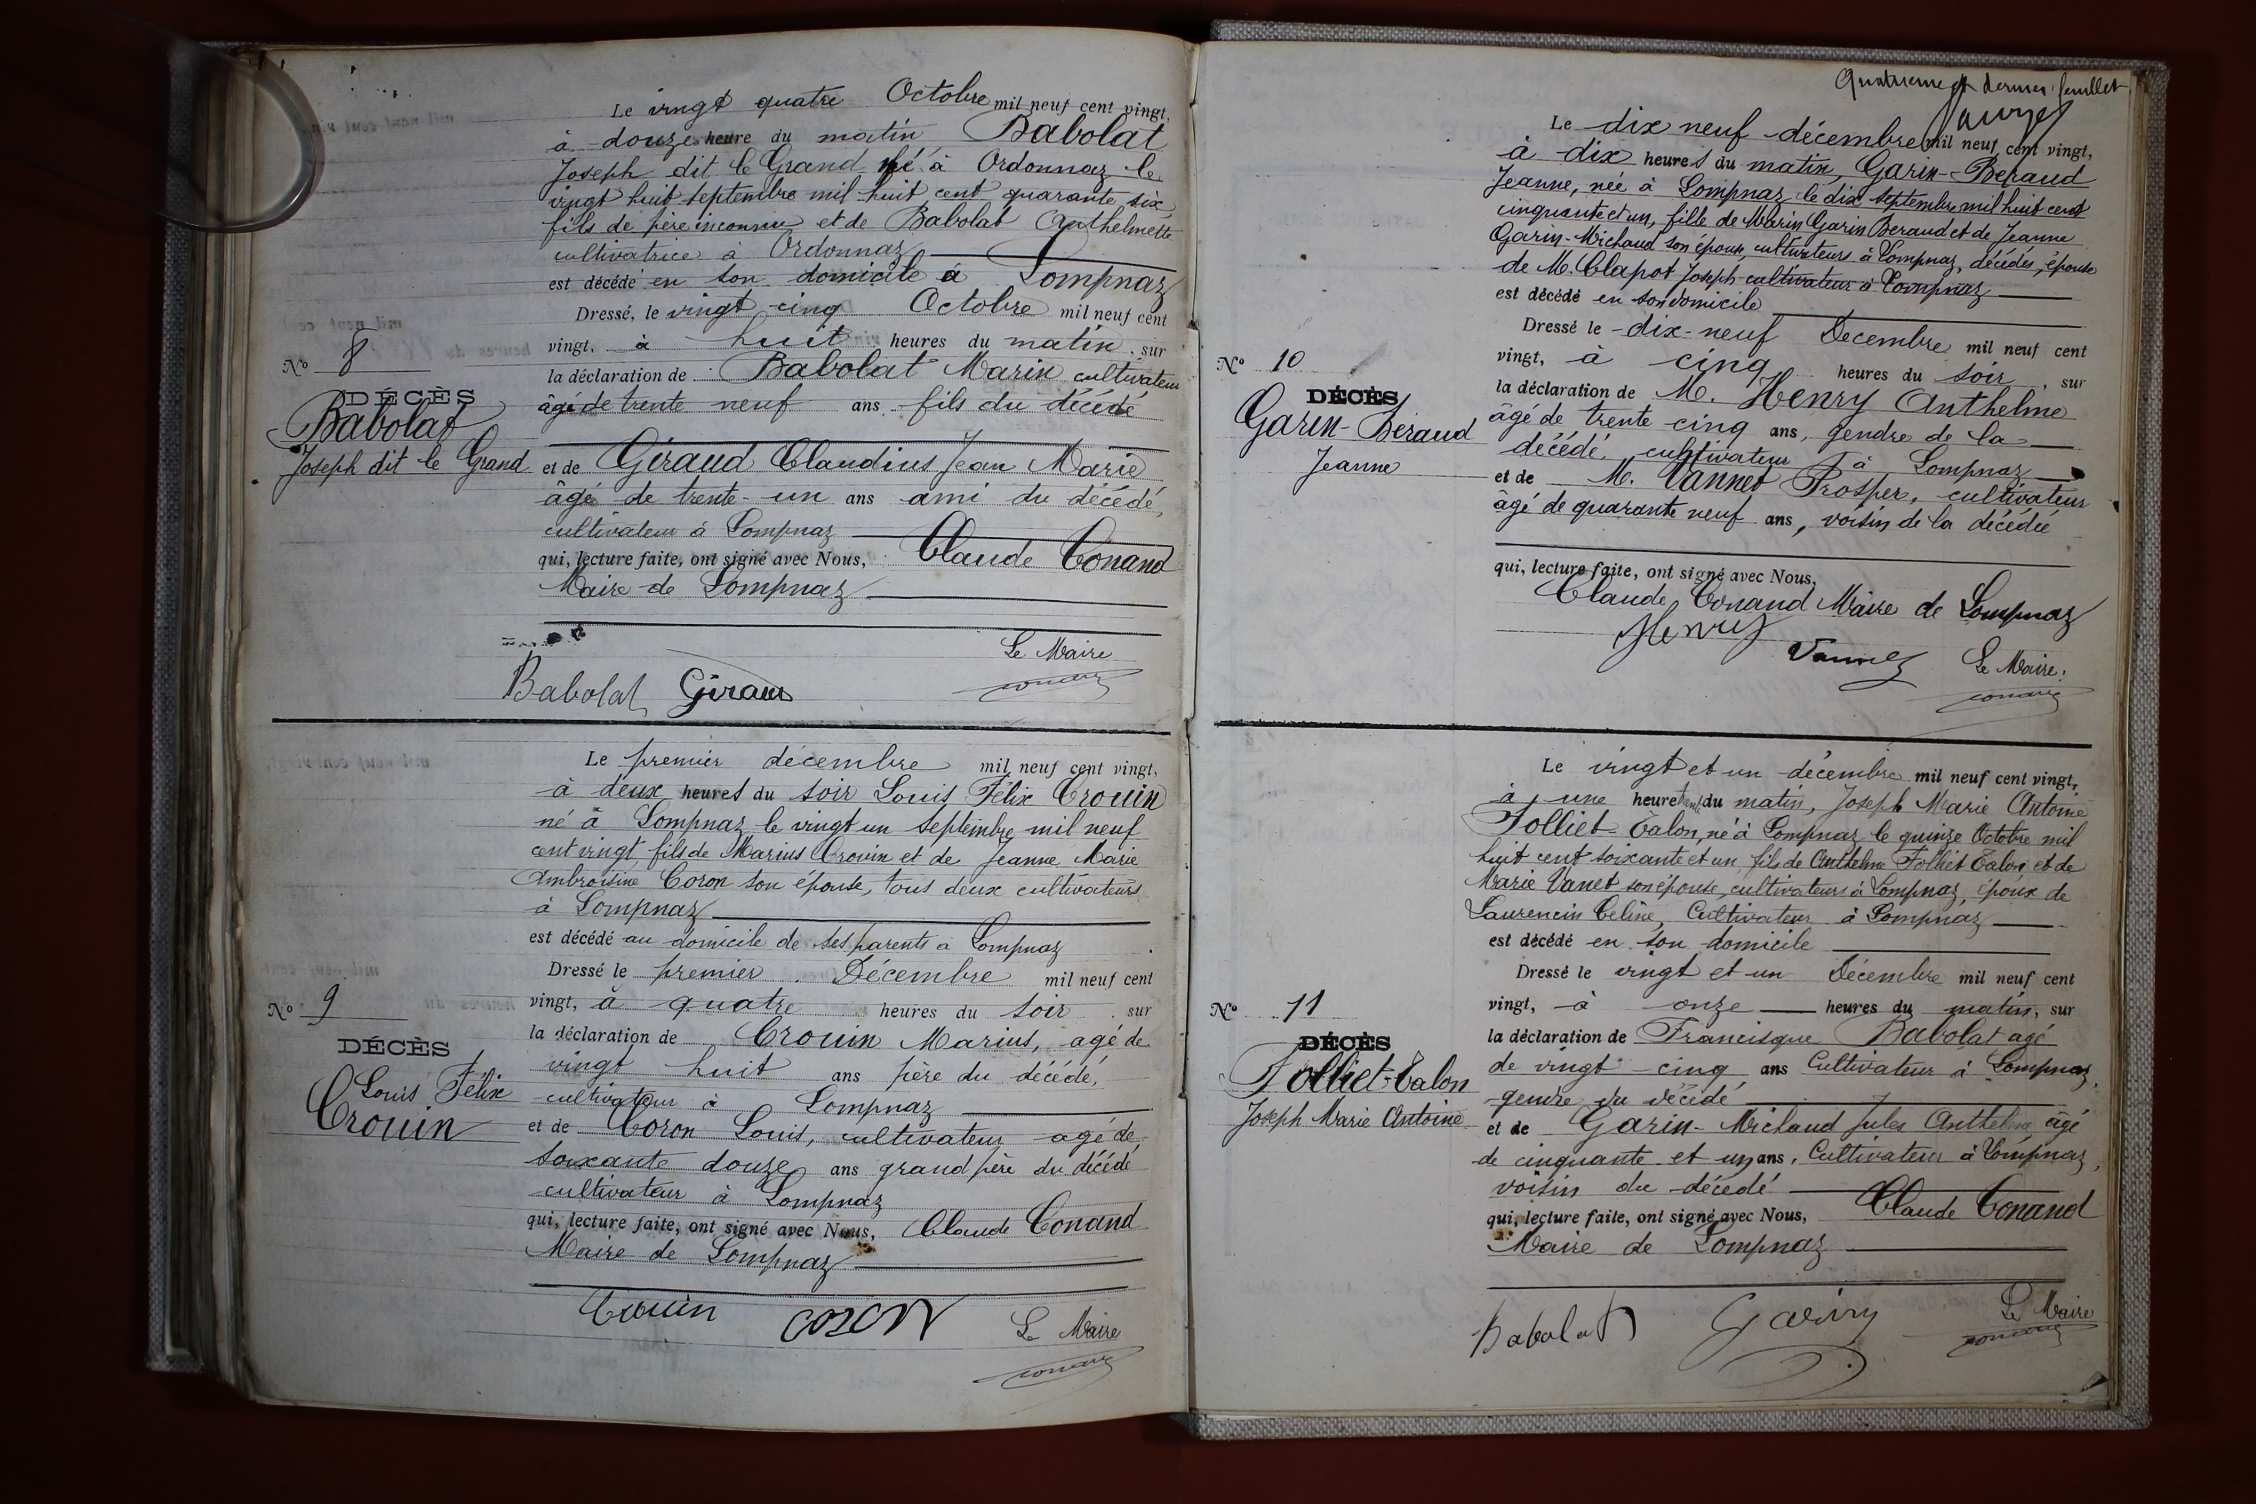 Le vingt quatre Octobre mil neuf cent vingt,
à douze heure du matin Babolat
Joseph dit le Grand né à Ordonnaz le
vingt huit septembre mil huit cent quarante six
fils de père inconnu et de Babolat Anthelmette
cultivatrice à Ordonnaz
est décédé en son domicile à Lompnaz
Dressé, le vingt cinq Octobre mil neuf cent
vingt, à huit heures du matin, sur
la déclaration de Babolat Marin cultivateur
âgé de trente neuf ans fils du décédé
et de Giraud Claudius Jean Marie
âgé de trente-un ans ami du décédé,
cultivateur à Lompnaz
qui, lecture faite, ont signé avec Nous, Claude Conand
Maire de Lompnaz
Le Maire
Babolat Giraud
conand
No 8
DÉCÈS
Babolat
Joseph dit le Grand
Le premier décembre mil neuf cent vingt,
à deux heures du soir Louis Félix Crouin
né à Lompnaz le vingt un septembre mil neuf
cent vingt fils de Marius Crouin et de Jeanne Marie
Ambroisine Coron son épouse, tous deux cultivateurs
à Lompnaz
est décédé au domicile de ses parents à Lompnaz
Dressé le premier Décembre mil neuf cent
vingt, à quatre heures du soir, sur
la déclaration de Crouin Marius, agé de
vingt huit ans père du décédé,
cultivateur à Lompnaz
et de Coron Louis, cultivateur agé de
soixante douze ans grand père du décédé
cultivateur à Lompnaz
qui, lecture faite, ont signé avec Nous, Claude Conand
Maire de Lompnaz
Crouin CORON Le Maire
conand
No 9
DÉCÈS
Louis Félix
Crouin
Quatrieme et dernier feuillet
Le dix neuf décembre mil neuf cent vingt,
à dix heures du matin, Garin-Beraud
Jeanne, née à Lompnaz le dix septembre mil huit cent
cinquante et un, fille de Marin Garin Beraud et de Jeanne
Garin-Michaud son épouse, cultivateurs à Lompnaz, décédés, épouse
de M. Clapot Joseph cultivateur à Lompnaz
est décédé en son domicile
Dressé le dix-neuf Decembre mil neuf cent
vingt, à cinq heures du soir, sur
la déclaration de M. Henry Anthelme
âgé de trente cinq ans, gendre de la
décédé, cultivateur à Lompnaz
et de M. Vannet Prosper, cultivateur
âgé de quarante neuf ans, voisin de la décédée
qui, lecture faite, ont signé avec Nous,
Claude Conand Maire de Lompnaz
Henry
Le Maire
conand
No 10
DÉCÈS
Garin-Béraud
Jeanne
Le vingt et un décembre mil neuf cent vingt,
à une heure du matin, Joseph Marie Antoine
Folliet-Talon, né à Lompnaz le quinze Octobre mil
huit cent soixante et un, fils de Anthelme Folliet Talon et de
Marie Vanet son épouse, cultivateurs à Lompnaz, époux de
Laurencin Celine, Cultivateur à Lompnaz
est décédé en son domicile
Dressé le vingt et un Décembre mil neuf cent
vingt, à onze heures du matin, sur
la déclaration de Francisque Babolat agé
de vingt-cinq ans Cultivateur à Lompnaz,
gendre du décédé
et de Garin-Michaud Jules Anthelme âgé
de cinquante et un ans, Cultivateur à Lompnaz,
voisin du décédé
qui, lecture faite, ont signé avec Nous, Claude Conand
Maire de Lompnaz
Babolat Garin Le Maire
conand
No 11
DÉCÈS
Folliet-Talon
Joseph Marie Antoine